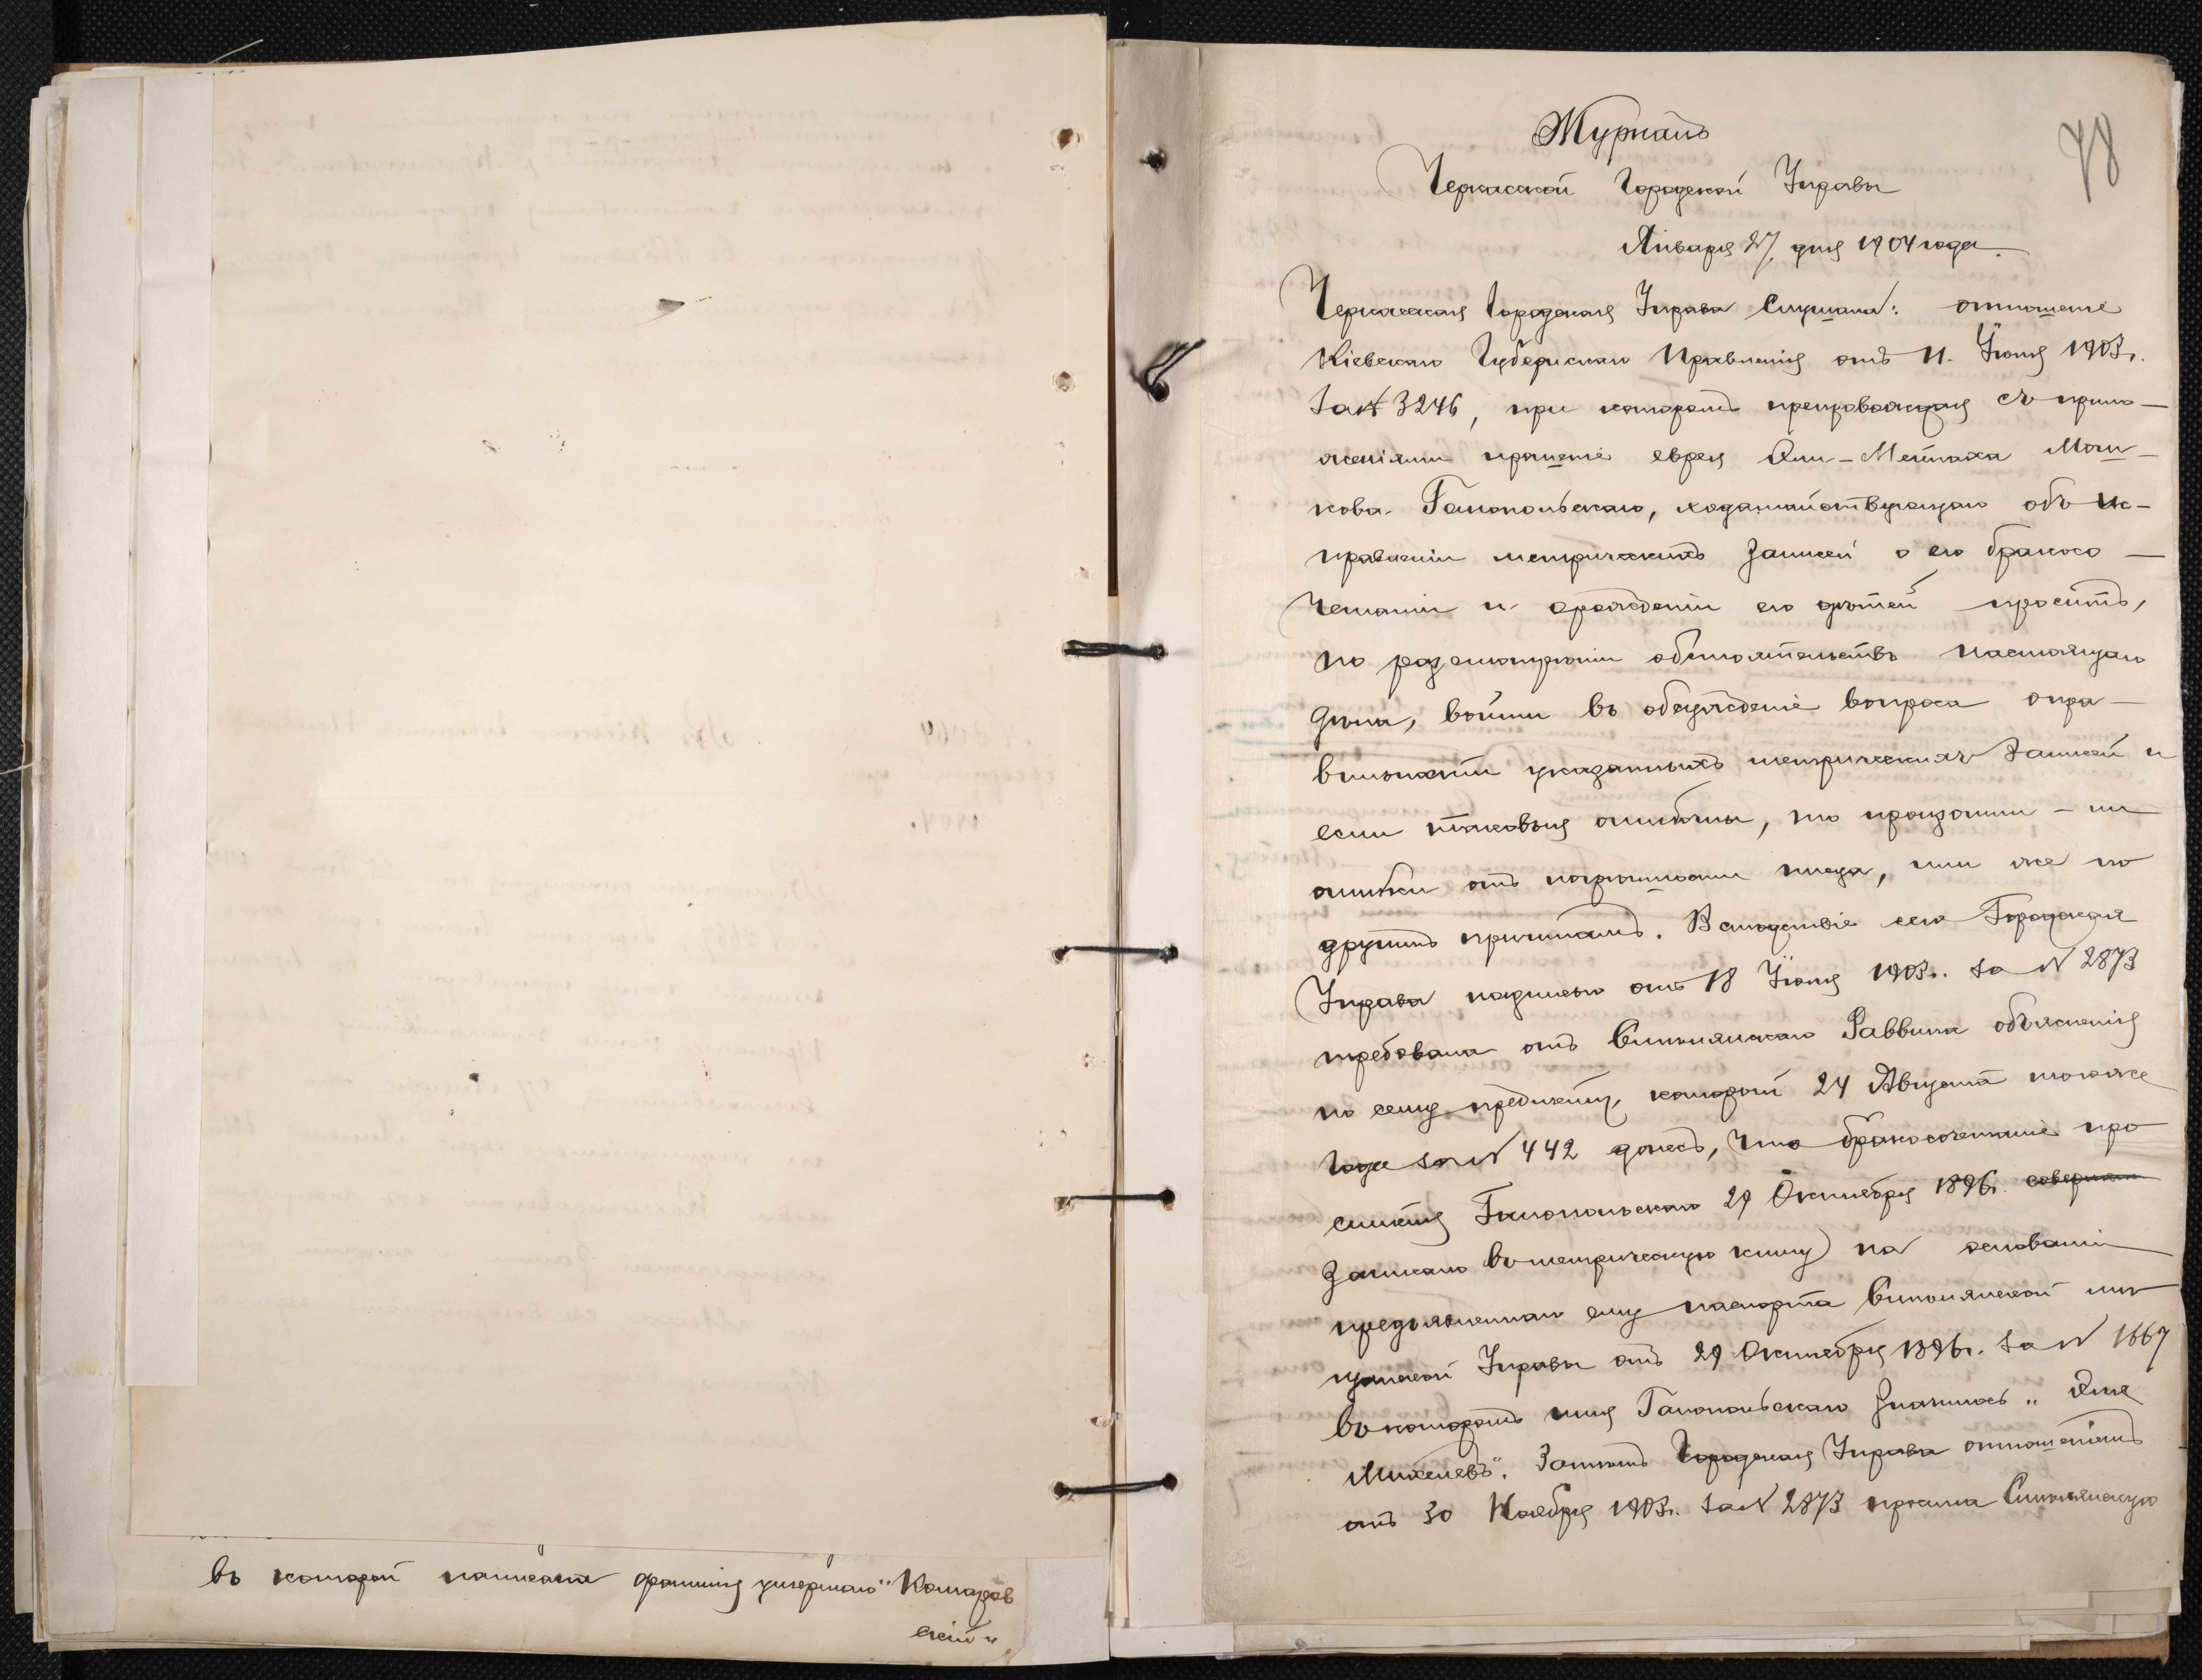 въ которой написана фамилія умершаго "Комаров
скій"
78
Журналъ
Черкасской Городской Управы
Января 27 дня 1904 года.
Черкасская Городская Управа Слушала: отношеніе
Кіевскаго Губернскаго Правленія отъ 11. Іюня 1903 г.
за № 3246, при которомъ препровождая съ прило-
женіями прошеніе еврея Эли-Мейлаха Мош-
кова Гайопольскаго, ходатайствующаго объ ис-
правленіи метрическихъ записей о его бракосо-
четаніи и о рожденіи его дѣтей проситъ,
по разсмотрѣніи обстоятельствъ настоящаго
дѣла, войти въ обсужденіе вопроса о пра-
вильности указанныхъ метрическихъ записей и
если таковыя ошибочны, то произошли-ли
ошибки отъ погрѣшности писца, или же по
другимъ причинамъ. Вслѣдствіе сего Городская
Управа надписью отъ 18 Іюня 1903 г. за № 2873
требовала отъ Смѣлянскаго Раввина объясненія
по сему предмету, который 24 Августа того же
года за № 442 донесъ, что бракосочетаніе про
сителя Гайопольскаго 29 Октября 1896 г. соверше
записано въ метрическую книгу на основаніи
предъявленнаго ему паспорта Смѣлянской мѣ
щанской Управы отъ 29 Октября 1896 г. за № 1667
въ которомъ имя Гайопольскаго значилось "Эля
Михелевъ". Затѣмъ Городская Управа отношеніемъ
отъ 30 Ноября 1903 г. за № 2873 просила Смѣлянскую